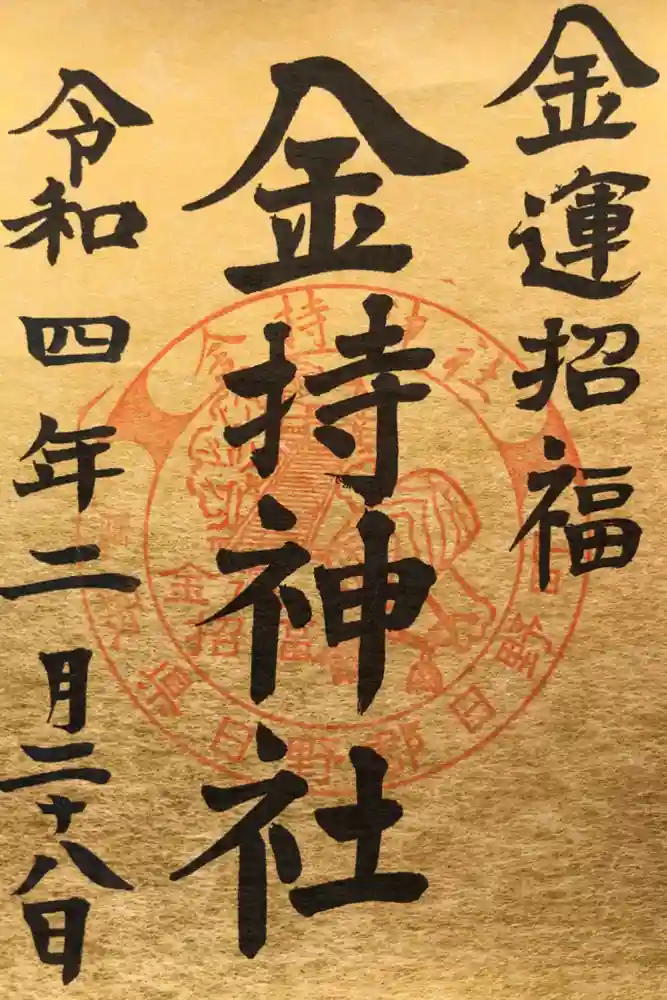 金運招福
金持神社
令和四年二月二十八日
金持神社
鳥取県日野郡日野町
金運
招福